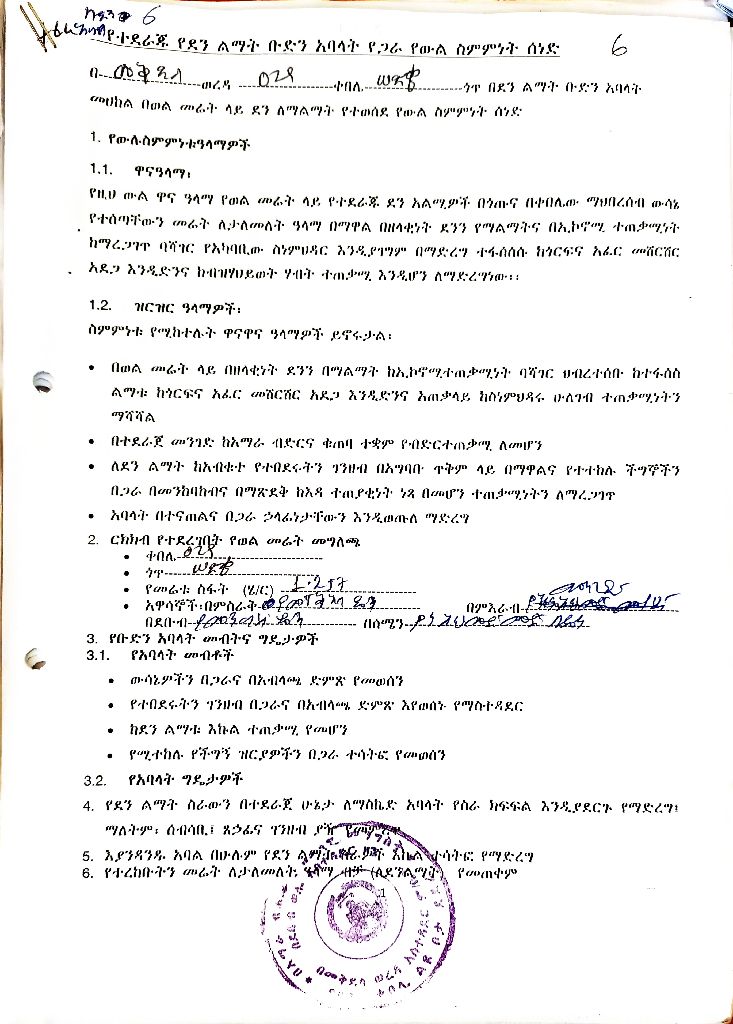 6
6
የተደራጁ የደን ልማት ቡድን አባላት የጋራ የውል ስምምነት ሰነድ
በ መቅደላ ወረዳ 029 ቀበሌ ጎጥ በደን ልማት ቡድን አባላት
መሀከል በወል መሬት ላይ ደን ለማልማት የተወሰደ የውል ስምምነት ሰነድ
1. የውሉስምምነቱዓላማዎች
1.1. ዋናዓላማ፡
የዚህ ውል ዋና ዓላማ የወል መሬት ላይ የተደራጁ ደን አልሚዎች በጎጡና በቀበሌው ማህበረሰብ ውሳኔ
የተሰጣቸውን መሬት ለታለመለት ዓላማ በማዋል በዘላቂነት ደንን የማልማትና በኢኮኖሚ ተጠቃሚነት
ከማረጋገጥ ባሻገር የአካባቢው ስነምህዳር እንዲያገግም በማድረግ ተፋሰሱ ከጎርፍና አፈር መሸርሸር
አደጋ እንዲድንና ከብዝሃህይወት ሃብት ተጠቃሚ እንዲሆን ለማድረግነው፡፡
1.2. ዝርዝር ዓላማዎች፡
ስምምነቱ የሚከተሉት ዋናዋና ዓላማዎች ይኖሩታል፡
• በወል መሬት ላይ በዘላቂነት ደንን በማልማት ከኢኮኖሚተጠቃሚነት ባሻገር ህብረተሰቡ ከተፋሰስ
ልማቱ ከጎርፍና አፈር መሸርሸር አደጋ እንዲድንና አጠቃላይ ከስነምህዳሩ ሁለገብ ተጠቃሚነትን
ማሻሻል
• በተደራጀ መንገድ ከአማራ ብድርና ቁጠባ ተቋም የብድርተጠቃሚ ለመሆን
• ለደን ልማት ከአብቁተ የተበደሩትን ገንዘብ በአግባቡ ጥቅም ላይ በማዋልና የተተከሉ ችግኞችን
በጋራ በመንከባከብና በማጽደቅ ከእዳ ተጠያቂነት ነጻ በመሆን ተጠቃሚነትን ለማረጋገጥ
• አባላት በተናጠልና በጋራ ኃላፊነታቸውን እንዲወጡለ ማድረግ
2. ርክክብ የተደረገበት የወል መሬት መግለጫ
• ቀበሌ 029
• ጎጥ
• የመሬቱ ስፋት (ሄ/ር) 1.257
• አዋሳኞች፡በምስራቅ በምእራብ
በደቡብ በሰሜን
3. የቡድን አባላት መብትና ግዴታዎች
3.1. የአባላት መብቶች
• ውሳኔዎችን በጋራና በአብላጫ ድምጽ የመወሰን
• የተበደሩትን ገንዘብ በጋራና በአብላጫ ድምጽ እየወሰኑ የማስተዳደር
• ከደን ልማቱ እኩል ተጠቃሚ የመሆን
• የሚተከሉ የችግኝ ዝርያዎችን በጋራ ተሳትፎ የመወሰን
3.2. የአባላት ግዴታዎች
4. የደን ልማት ስራውን በተደራጀ ሁኔታ ለማስኬድ አባላት የስራ ክፍፍል እንዲያደርጉ የማድረግ፤
ማለትም፡ ሰብሳቢ፤ ጸኃፊና ገንዘብ ያዥ የመምረጥ
5. እያንዳንዱ አባል በሁሉም የደን ልማት ስራዎች እኩል ተሳትፎ የማድረግ
6. የተረከቡትን መሬት ለታለመለት ዓላማ ብቻ (ለደንልማት) የመጠቀም
1